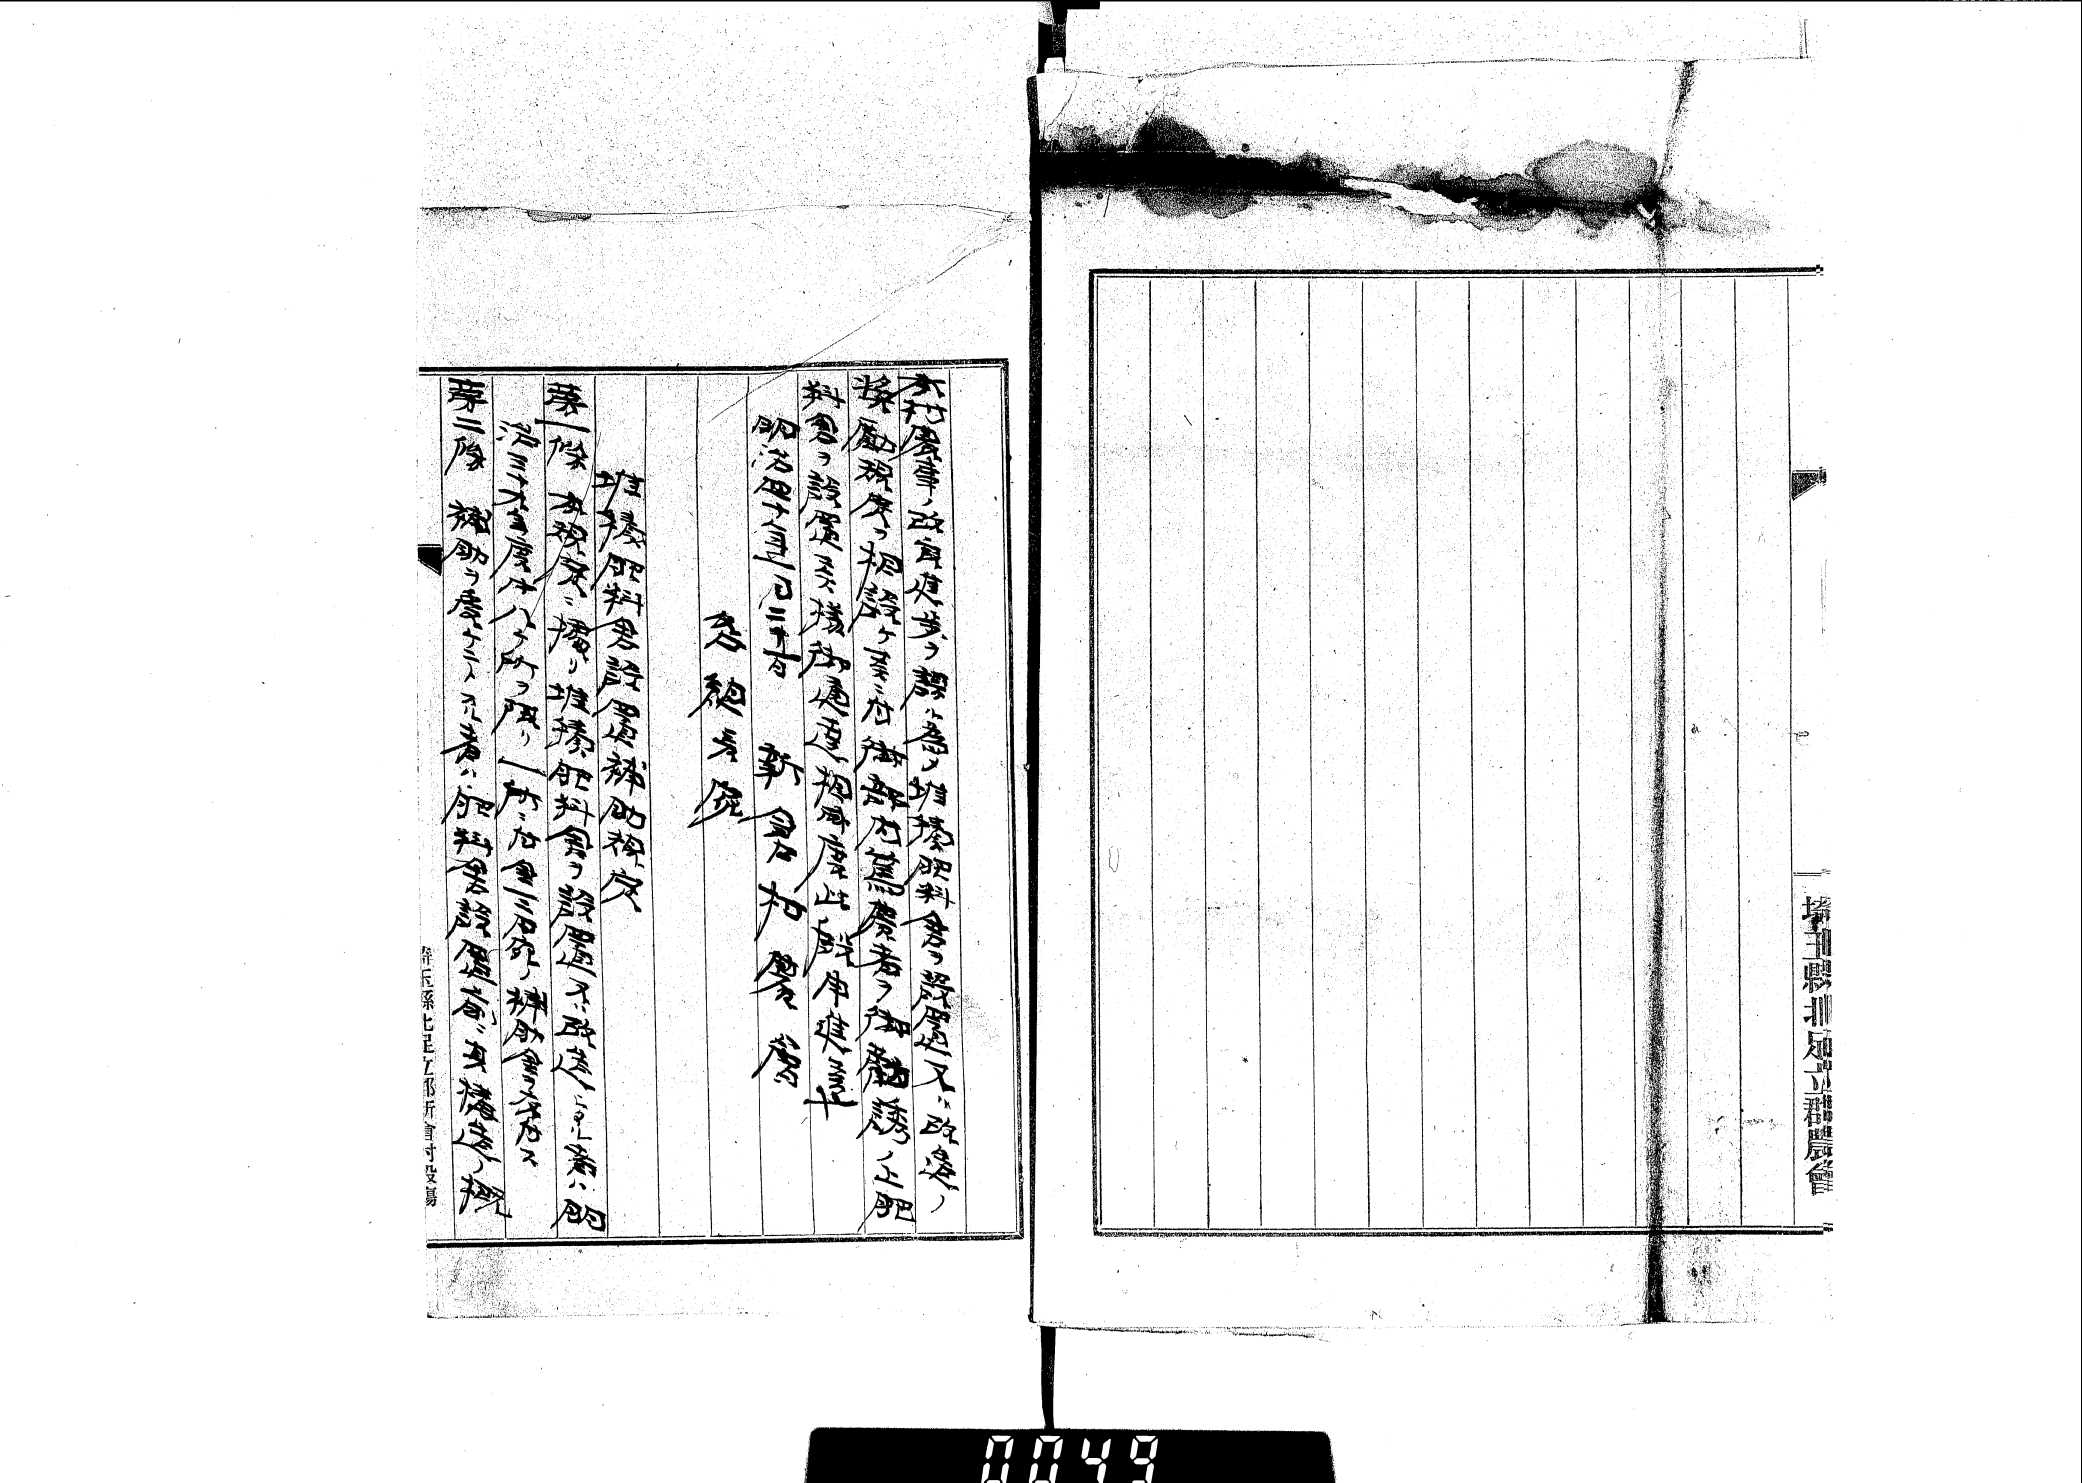 埼玉縣北足立郡農會
本村農事ノ改良進歩ヲ謀ル為メ堆積肥料舎ヲ設置又ハ改造ノ
奨励規定ヲ相設ケ候ニ付御部内篤農者ヲ御勧誘ノ上肥
料舎ヲ設置候様御通達相成度此段申進候也
明治四十年一月二十一日 新倉村農會
各總長宛
堆積肥料舎設置補助規定
第一條 本規定ニ據リ堆積肥料舎ヲ設置又ハ改造シタル者ハ明
治三十九年度内八ケ所ヲ限リ一ケ所ニ付金三円宛ノ補助金ヲ交付ス
第二條 補助ヲ受ケントスル者ハ肥料舎設置前ニ其構造ノ概
埼玉縣北足立郡新倉村役場
0049